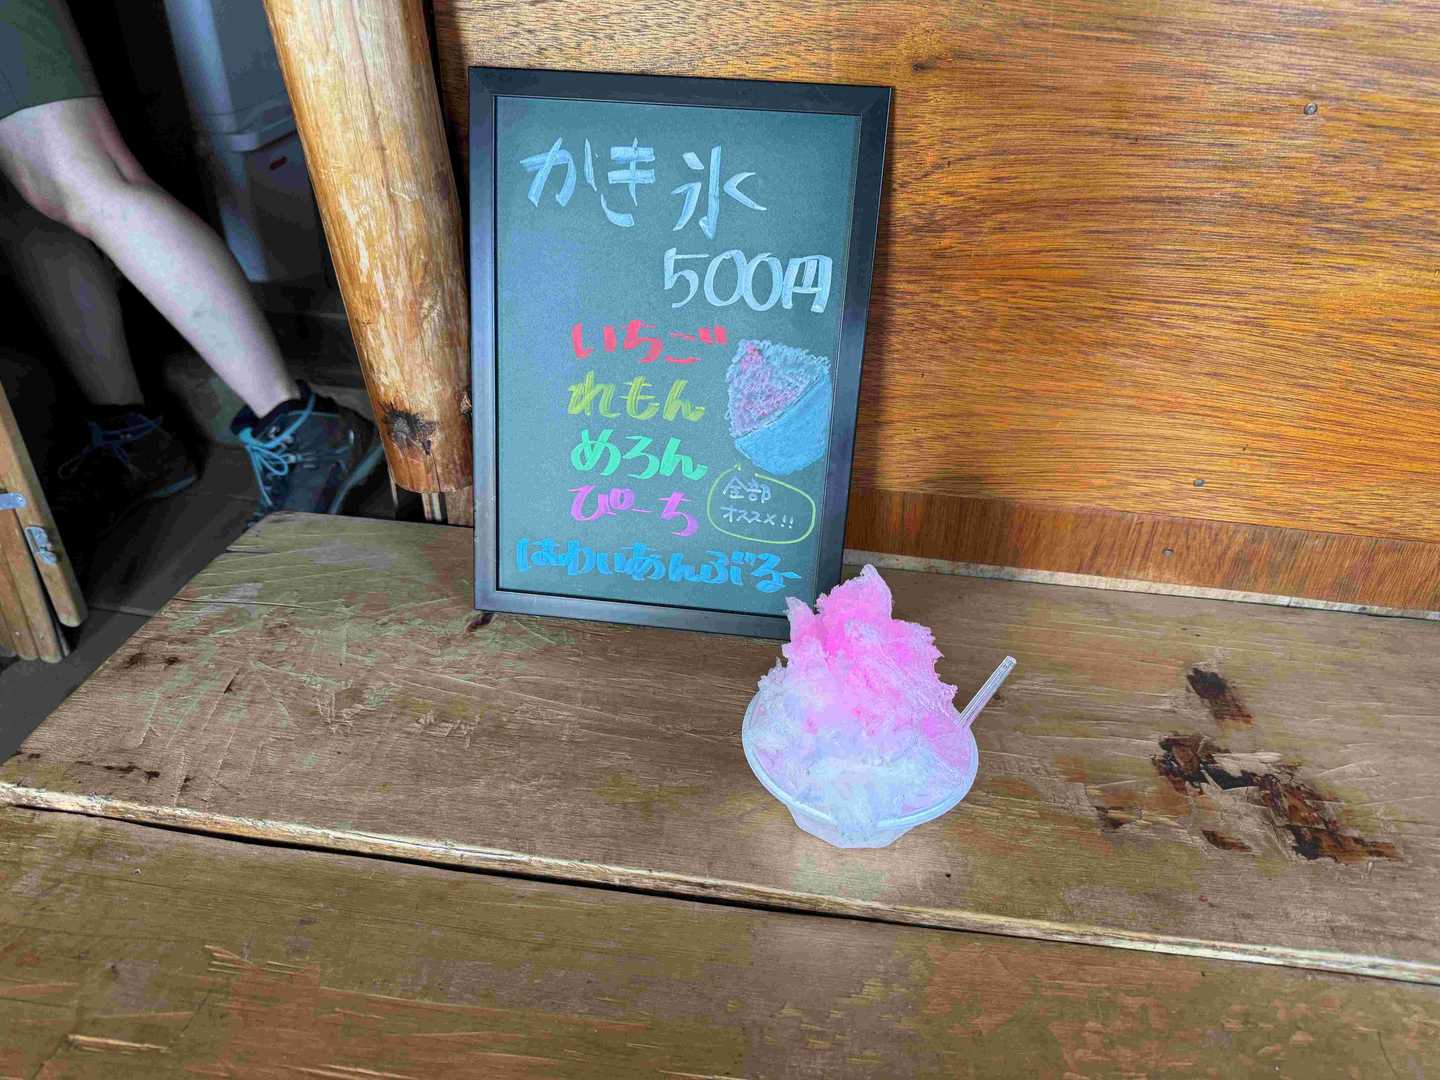 かき氷
500円
いちご
れもん
めろん
ぴーち
全部
オススメ!!
はわいあんぶるー